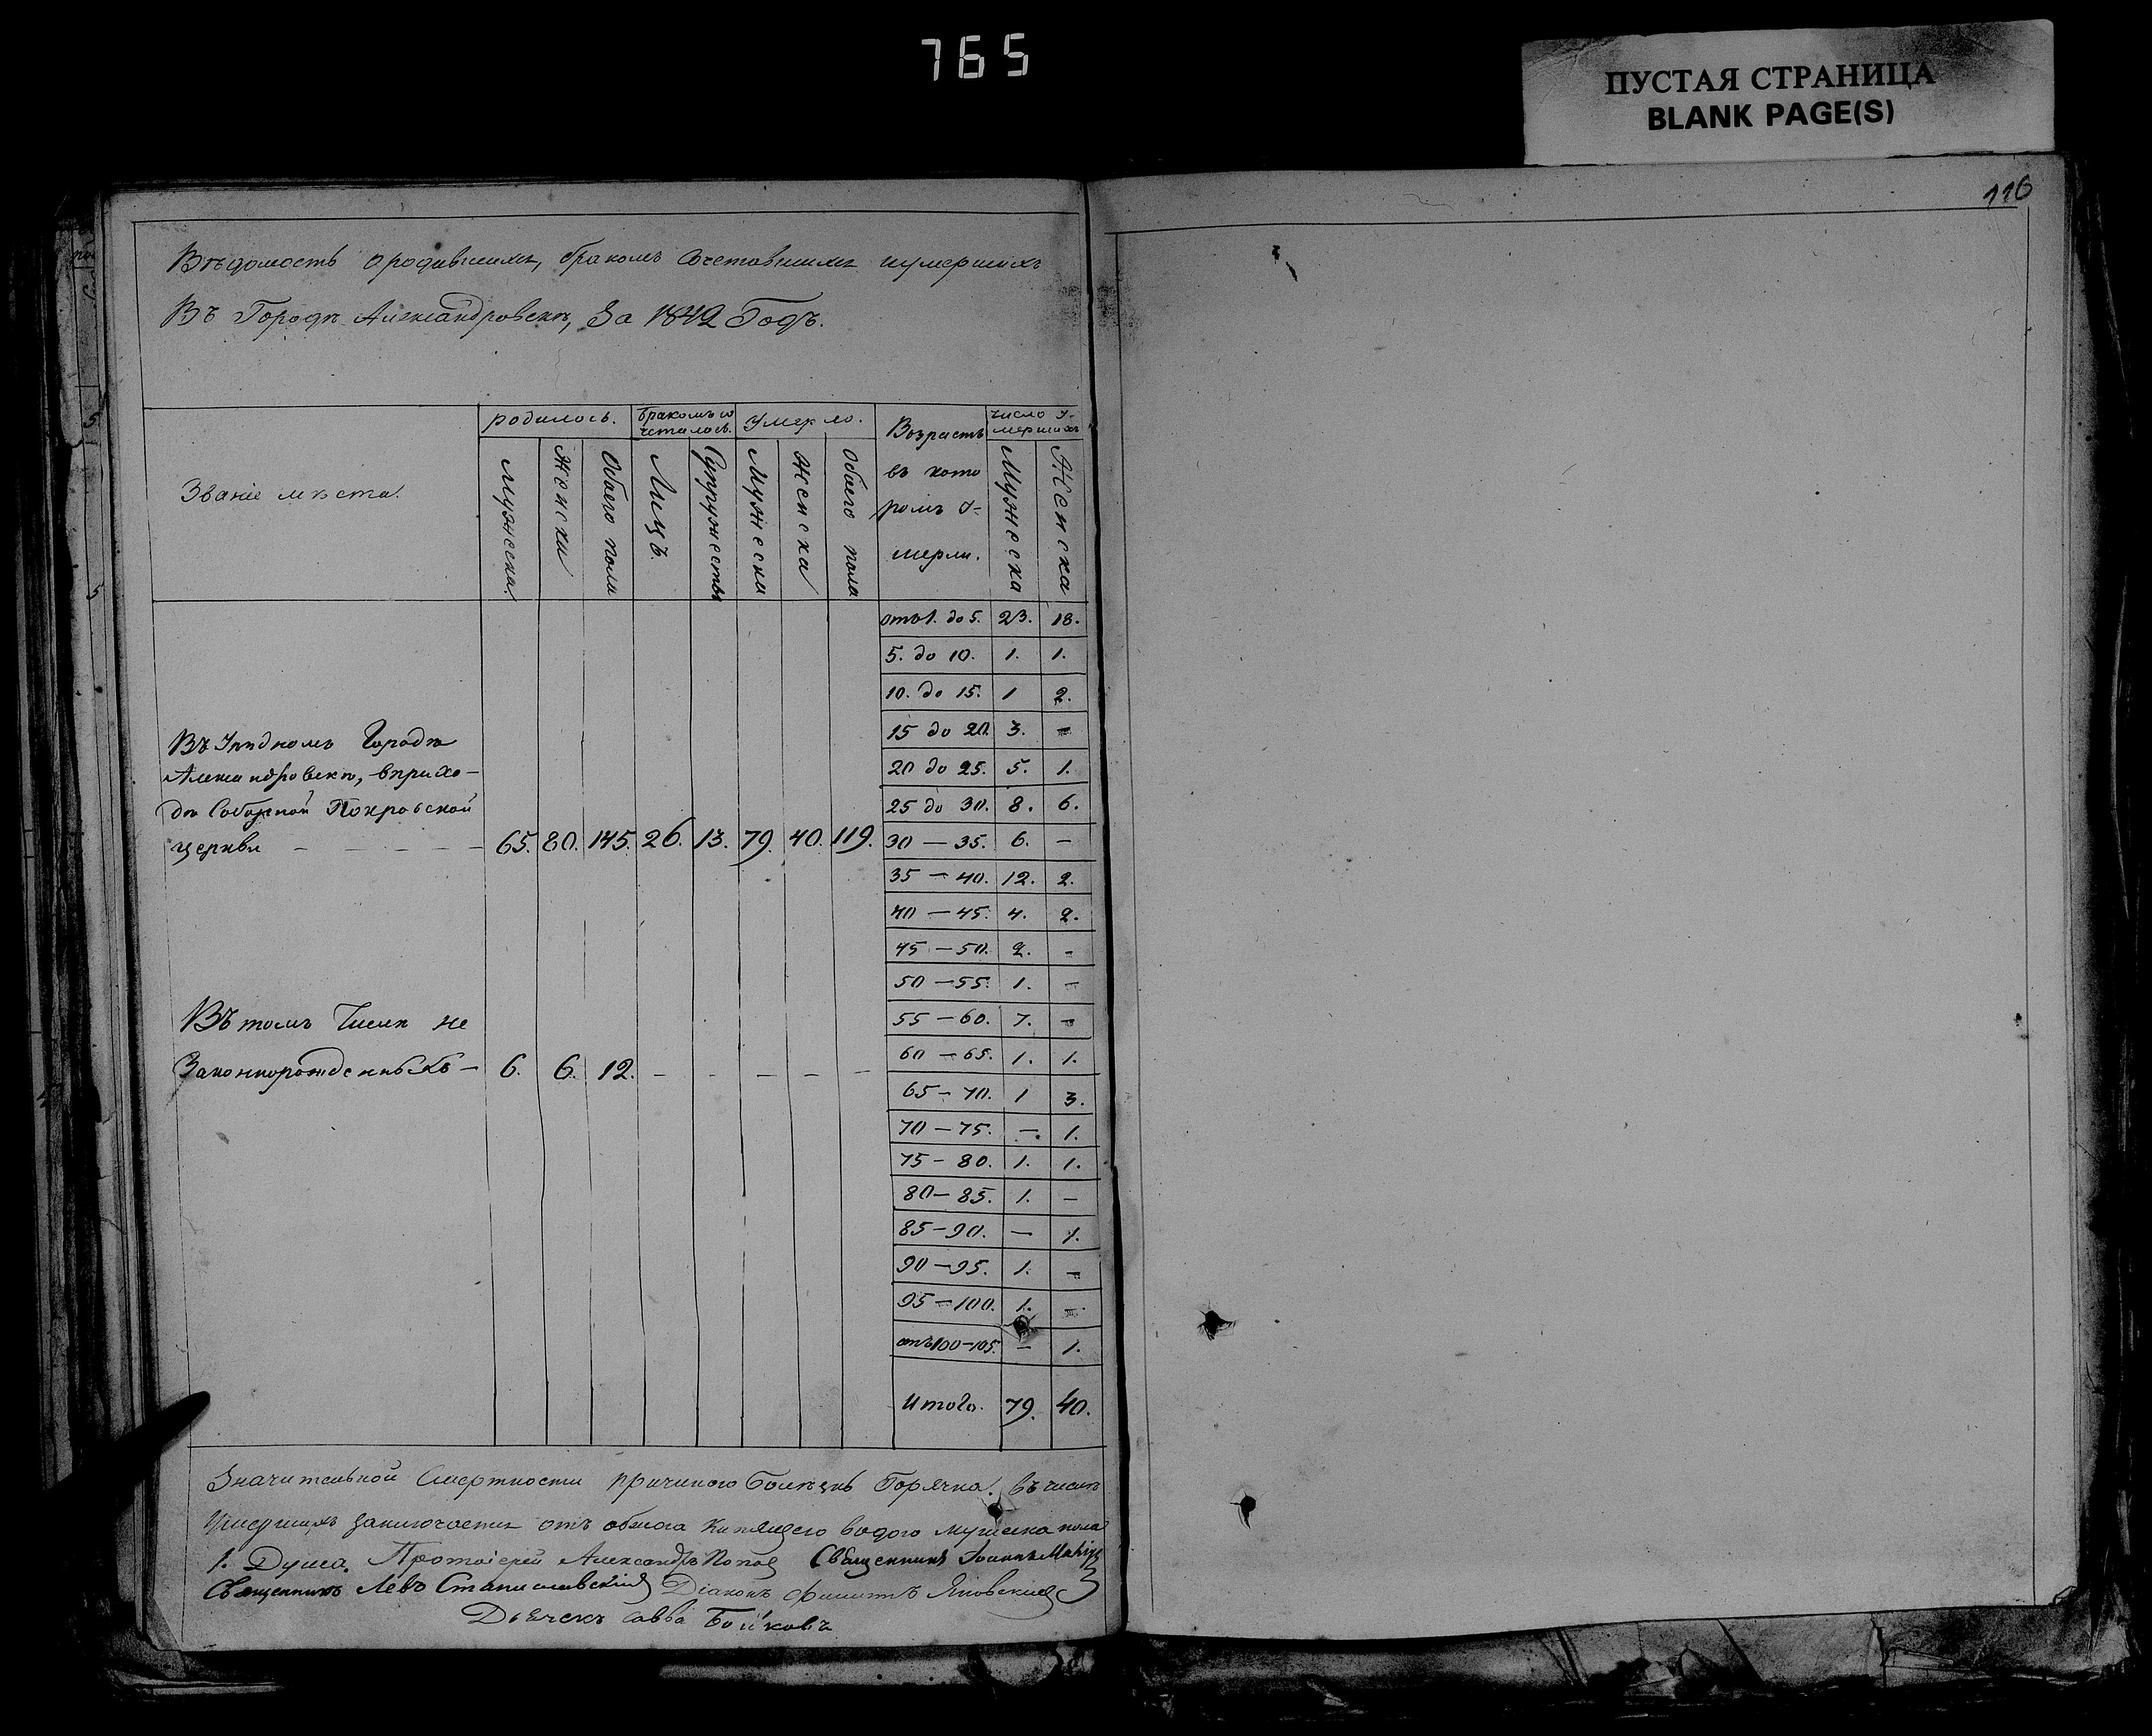 765
ПУСТАЯ СТРАНИЦА
BLANK PAGE(S)
116
Вѣдомость ородившихъ, бракомъ сочетавшихъ иумершихъ
Въ Городѣ Александровскѣ, За 1842 Годъ.
Званіе мѣста.
родилось.
Мужеска.
Женска
Обоего пола
бракомъ со
четалось.
Лицъ.
Супружествъ
Умерло.
Мужеска
Женска
Обоего пола
Возрастъ
въ кото
ромъ У-
мерли.
Число У-
мершихъ
Мужеска
Женска
Въ Уѣздномъ Городѣ
Александровскѣ, вприхо-
дѣ Соборной Покровской
церкви - - - - - 65. 80. 145. 26. 13. 79. 40. 119.
Въ томъ Числѣ не
Законнорожденныхъ - 6. 6. 12. - - - - -
отъ 1. до 5. 23. 18.
5. до 10. 1. 1.
10. до 15. 1 2.
15 до 20. 3. -
20 до 25. 5. 1.
25 до 30. 8. 6.
30 — 35. 6. -
35 — 40. 12. 2.
40 — 45. 4. 2.
45 — 50. 2. -
50 — 55. 1. -
55 — 60. 7. -
60 — 65. 1. 1.
65 — 70. 1 3.
70 — 75. — 1.
75 - 80. 1. 1.
80 — 85. 1. —
85 — 90. — 1.
90 — 95. 1. -
95 — 100. 1. -
отъ 100 — 105. — 1.
Итого. 79. 40.
Значительной Смертности причиною Болѣзнь Горячка. въ числѣ
Умершихъ заключается отъ обжога кипящею водою мужеска пола
1. Душа. Протоіерей Александръ Попов Священникъ Іоаннъ
Священникъ Левъ Станиславскій Діаконъ Филиппъ Яновскій
Дьячекъ Савва Бойковъ